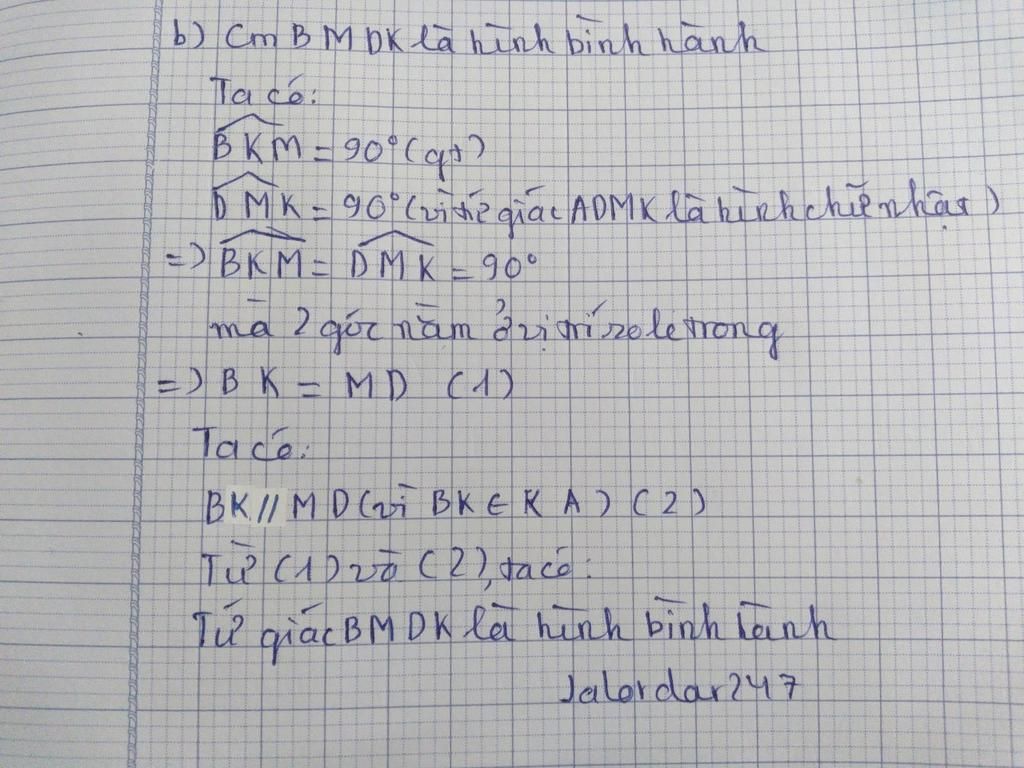 b) Cm BMDK là hình bình hành
Ta có:
BKM = 90° (gt)
DMK = 90° (vì tứ giác ADMK là hình chữ nhật)
=> BKM = DMK = 90°
mà 2 góc nằm ở vị trí so le trong
=> BK = MD (1)
Ta có:
BK // MD (vì BK ∈ KA) (2)
Từ (1) và (2), ta có:
Tứ giác BMDK là hình bình hành
Jalordar247